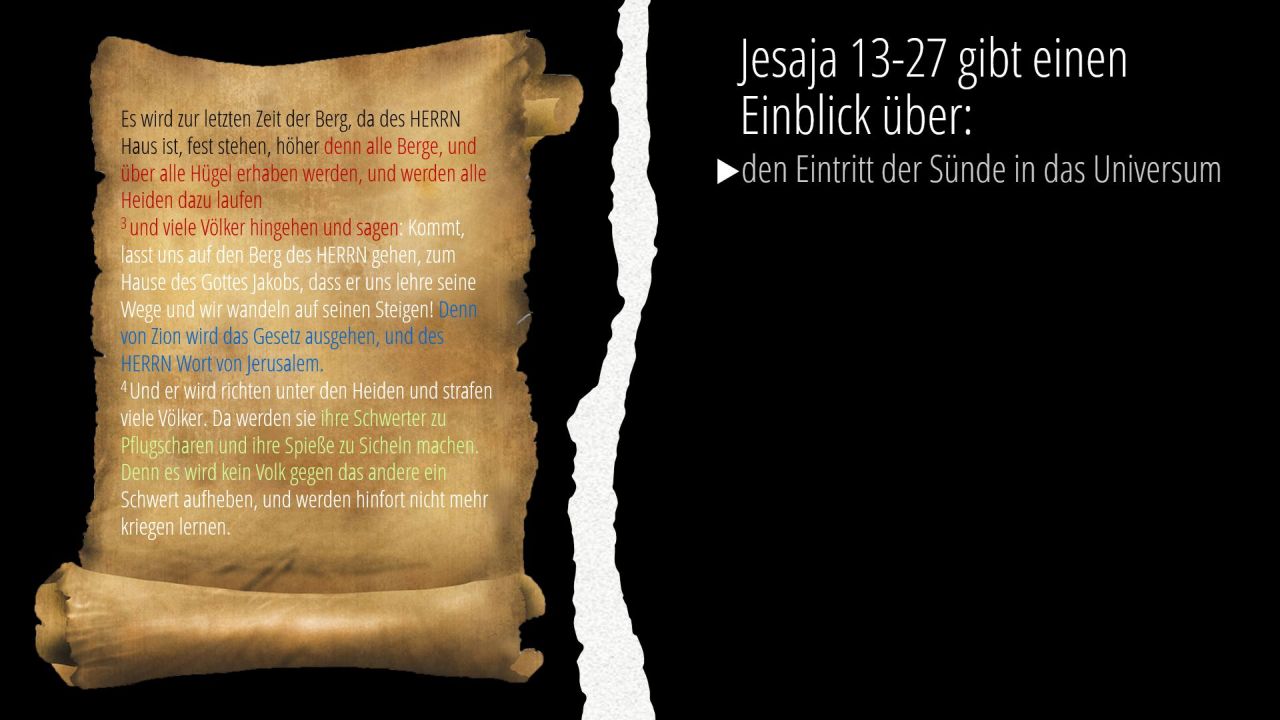 Es wird zur letzten Zeit der Berg, da des HERRN
Haus ist, fest stehen, höher denn alle Berge, und
über alle Hügel erhaben werden, und werden alle
Heiden dazu laufen
3 und viele Völker hingehen und sagen: Kommt,
lasst uns auf den Berg des HERRN gehen, zum
Hause des Gottes Jakobs, dass er uns lehre seine
Wege und wir wandeln auf seinen Steigen! Denn
von Zion wird das Gesetz ausgehen, und des
HERRN Wort von Jerusalem.
4 Und er wird richten unter den Heiden und strafen
viele Völker. Da werden sie ihre Schwerter zu
Pflugscharen und ihre Spieße zu Sicheln machen.
Denn es wird kein Volk gegen das andere ein
Schwert aufheben, und werden hinfort nicht mehr
kriegen lernen.
Jesaja 13-27 gibt einen
Einblick über:
▶den Eintritt der Sünde in das Universum